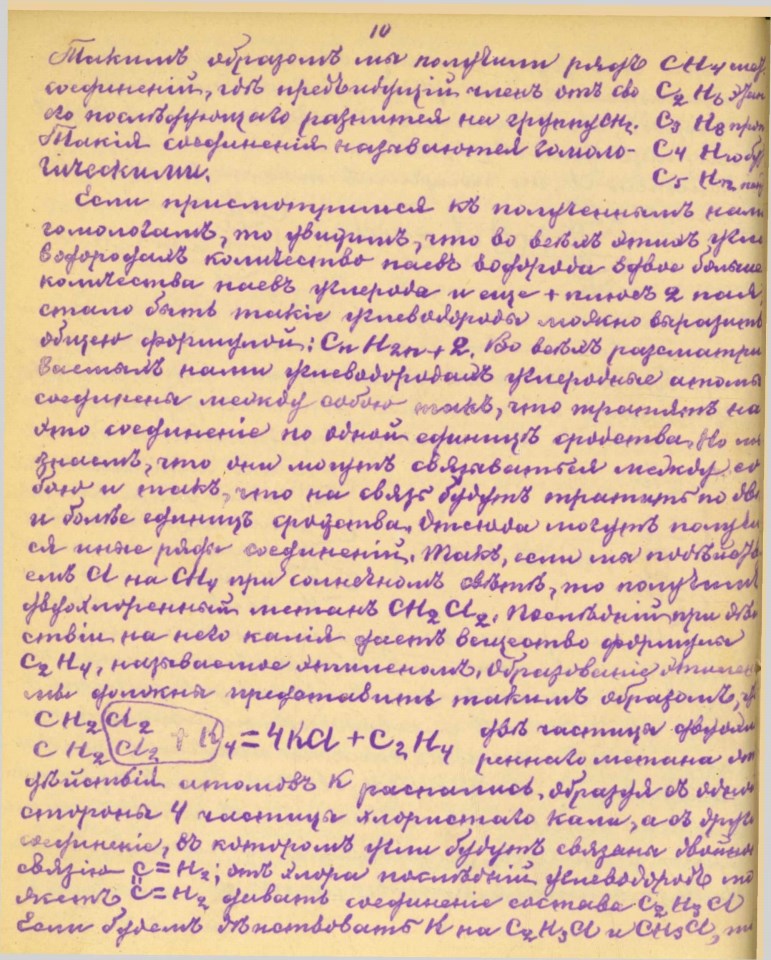 10
Такимъ образомъ мы получили рядъ CH4 мет
соединеній, гдѣ предъидущій членъ отъ сво C2 H6 этан
его послѣдующаго разнится на группу CH2. C3 H8 проп
Такія соединенія называются гомоло- C4 H10 бут
гическими. C5 H12
Если присмотримся къ полученнымъ нами
гомологамъ, то увидимъ, что во всѣхъ этихъ угле
водородахъ количество паевъ водорода вдвое больше
количества паевъ углерода и еще + плюсъ 2 пая,
стало быть такіе углеводороды можно выразить
общею формулой: CnH2n+2. Во всѣхъ разсматри
ваемыхъ нами углеводородахъ углеродные атомы
соединены между собою такъ, что тратятъ на
это соединеніе по одной единицѣ сродства. Но мы
знаемъ, что они могутъ связываться между со
бою и такъ, что на связь будутъ тратить по двѣ
и болѣе единицъ сродства. Отсюда могутъ получи
ся иные ряды соединеній. Такъ, если мы подѣйству
емъ Cl на CH4 при солнечномъ свѣтѣ, то получимъ
двухлоренный метанъ CH2Cl2. Послѣдній при дѣй
ствіи на него калія даетъ вещество формулы
C2H4, называемое этиленомъ. Образованіе этилена
мы должны представить такимъ образомъ,
CH2 Cl2
CH2 Cl2 + K4 = 4KCl + C2H4 двѣ частицы двухло
реннаго метана от
дѣйствія атомовъ K распались, образуя съ одной
стороны 4 частицы хлористаго кали, а съ друго
соединеніе, въ которомъ угли будутъ связаны двойною
связію C=H2; отъ хлора послѣдній углеводородъ мо
жетъ C=H2 давать соединеніе состава C2H3Cl
Если будемъ дѣйствовать K на C2H3Cl и CH3Cl, то